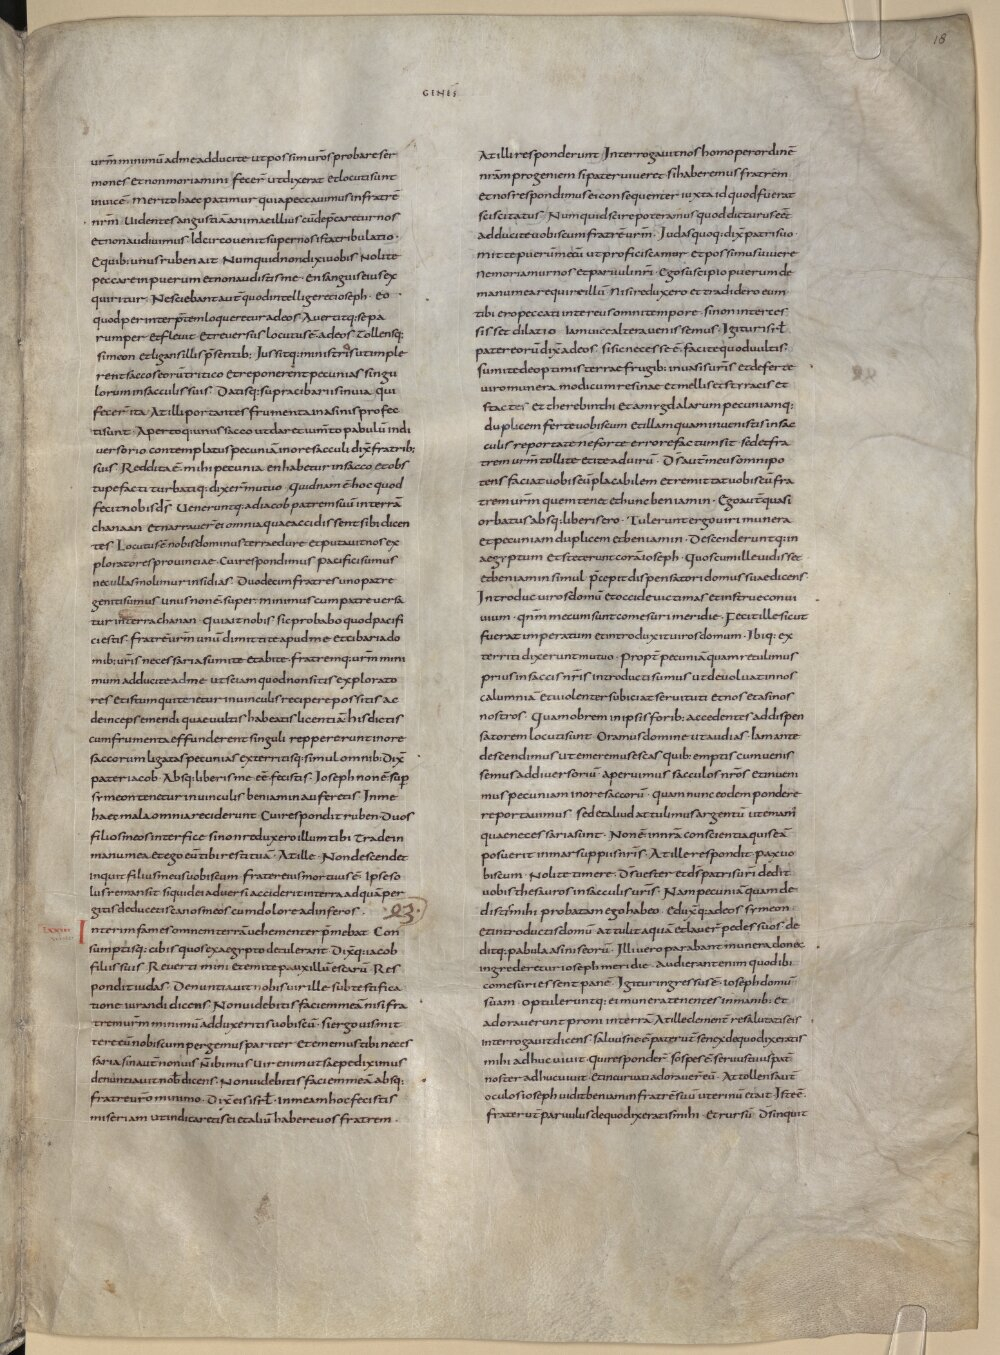 18
GENES̄
urm̄ minimū ad me adducite ut possim ur̄os probare ser
mones et non moriamini fecer̄ ut dixerat et locuti sunt
inuicē · merito haec patimur quia peccauimus in fratrē
nrm̄ · Uidentes angustiā animae illius cū dep̄caretur nos
et non audiuimus · Idcirco uenit super nos ista tribulatio ·
E quib; unus ruben ait · Numquid non dixi uobis · Nolite
peccare in puerum et non audistis me · En sanguis eius ex
quiritur · Nesciebant aut̄ quod intellegeret ioseph · Eo
quod per interp̄tem loqueretur ad eos · Auertitq; se pa
rumper et fleuit · Et reuersus locutus ē ad eos · Tollensq;
simeon et ligans illis p̄sentib; Iussitq; ministris ut imple
rent saccos eorū tritico · Et reponerent pecunias singu
lorum in sacculis suis · Datisq; supra cibariis in uia · qui
fecer̄ ita · At illi portantes frumenta in asinis profec
ti sunt · Apertoq; unus sacco ut daret iumto pabulū in di
uersorio contemplatus pecuniā in ore sacculi dix̄ fratrib;
suis · Reddita ē mihi pecunia en habetur in sacco · et obs
tupefacti turbatiq; dixer̄ mutuo · Quidnam ē hoc quod
fecit nobis d̄s · Ueneruntq; ad iacob patrem suū in terrā
chanaan · Et narrauer̄ ei omnia quae accidissent sibi dicen
tes · Locutus ē nobis dominus terrae dure et putauit nos ex
ploratores prouinciae · Cui respondimus · pacifici sumus
nec ullas molimur insidias · Duodecim fratres uno patre
geniti sumus · unus non ē super · minimus cum patre uersa
tur in terra chanan · Qui ait nobis · sic probabo quod pacifi
ci estis · fratrē urm̄ unū dimittite apud me · et cibaria do
mib; uris necessaria sumite et abite · fratremq; urm̄ mini
mum adducite ad me · ut sciam quod non sitis explorato
res et istum qui tenetur in uinculis recipere possitis ac
deinceps emendi quae uultis habeatis licentiā his dictis
cum frumenta effunderent singuli reppererunt in ore
saccorum ligatas pecunias exterritisq; simul omnib; Dix̄
pater iacob · Absq; liberis me eē fecistis · Ioseph non ē sup̄
symeon tenetur in uinculis beniamin auferetis · In me
haec mala omnia reciderunt · Cui respondit ruben · Duos
filios meos interfice si non reduxero illum tibi · Trade in
manu mea et ego eū tibi restituā · At ille · Non descendet
inquit filius meus uobiscum · frater eius mortuus ē · Ipse so
lus remansit · si quid ei aduersi acciderit in terra ad quā per
gitis deducetis canos meos cum dolore ad inferos ·
Interim fames omnem terrā uehementer p̄mebat · Con
sumptisq; cibis quos ex aegypto detulerant · Dix̄q; iacob
filiis suis · Reuertimini et emite pauxillū escarū · Res
pondit iudas · Denuntiauit nobis uir ille sub testifica
tione iurandi dicens · Non uidebitis faciem meā nisi fra
trem urm̄ minimū adduxeritis uobiscū · si ergo uis mit
tere eū nobiscum pergemus pariter · Et ememus tibi neces
saria · sin aut̄ non uis · N̄ ibimus · Uir enim ut saepe diximus
denuntiauit nob̄ dicens · Non uidebitis faciem meā absq;
fratre uro minimo · Dix̄ eis isrl̄ · In meam hoc fecistis
miseriam ut indicaretis ei et aliū habere uos fratrem ·
At illi responderunt · Interrogauit nos homo per ordinē
nr̄am progeniem si pater uiueret si haberemus fratrem
et nos respondimus ei consequenter iuxta id quod fuerat
sciscitatus · Numquid scire poteramus quod dicturus eēt
adducite uobiscum fratrē urm̄ · Iudas quoq; dix̄ patri suo ·
mitte puerū mecū ut proficiscamur · et possimus uiuere
ne moriamur nos et paruuli nr̄i · Ego suscipio puerum de
manu mea require illū · Nisi reduxero et tradidero eum
tibi ero peccati in te reus omni tempore · si non interces
sisset dilatio · iam uice altera uenissemus · Igitur isrl̄
pater eorū dix̄ ad eos · si sic necesse ē · facite quod uultis ·
sumite de optimis terrae frugib; in uasis uris et deferte
uiro munera modicum resinae et mellis et styracis et
stactes · Et therebinthi et amygdalarum pecuniamq;
duplicem ferte uobiscum et illam quam inuenistis in sac
culis reportate ne forte errore factum sit · sed et fra
trem urm̄ tollite et ite ad uirū · D̄s aut̄ meus omnipo
tens faciat uobis eū placabilem et remittat uobiscū fra
trem urm̄ quem tenet et hunc beniamin · Ego aut̄ quasi
orbatus absq; liberis ero · Tulerunt ergo uiri munera
et pecuniam duplicem et beniamin · Descenderuntq; in
aegyptum · Et steterunt corā ioseph · Quos cum ille uidisset
et beniamin simul · p̄cepit dispensatori domus suae dicens ·
Introduc uiros domū et occide uictimas et instrue conui
uium · qn̄m mecum sunt comesuri meridie · Fecit ille sicut
fuerat imperatum et introduxit uiros domum · Ibiq; ex
territi dixerunt mutuo · Propt̄ pecuniā quam retulimus
prius in saccis nr̄is introducti sumus ut deuoluat in nos
calumniā · et uiolenter subiciat seruituti et nos et asinos
nostros · Quam ob rem in ipsis forib; accedentes ad dispen
satorem locuti sunt · Oramus domine ut audias · Iam ante
descendimus ut emeremus escas · quib; emptis cum uenis
semus ad diuersoriū · aperuimus sacculos nr̄os et inueni
mus pecuniam in ore saccorū · quam nunc eodem pondere
reportauimus · sed et aliud attulimus argentū ut emam̄
quae necessaria sunt · Non ē in nr̄a conscientia quis eā
posuerit in marsuppiis nr̄is · At ille respondit · pax uo
biscum · Nolite timere · D̄s uester et d̄s patris uri dedit
uobis thesauros in sacculis ur̄is · Nam pecuniā quam de
distis mihi probatam ego habeo · Eduxq; ad eos symeon ·
et introductis domū · attulit aquā et lauer̄ pedes suos · de
ditq; pabula asinis eorū · Illi uero parabant munera donec
ingrederetur ioseph meridie · Audierant enim quod ibi
comesuri essent pane · Igitur ingressus ē · ioseph domū
suam · optuleruntq; ei munera tenentes in manib; et
adorauerunt proni in terrā · At ille clement̄ resalutatis eis
interrogauit dicens · saluusne ē pater ur̄ senex de quo dixeratis
mihi adhuc uiuit · qui responder̄ · sospes ē seruus tuus pat̄
noster adhuc uiuit · Et incuruati adorauer̄ eū · Attollens aut̄
oculos ioseph uidit beniamin fratrē suū uterinū et ait · Iste ē
frater ur̄ paruulus de quo dixeratis mihi · Et rursū · D̄s inquit
23